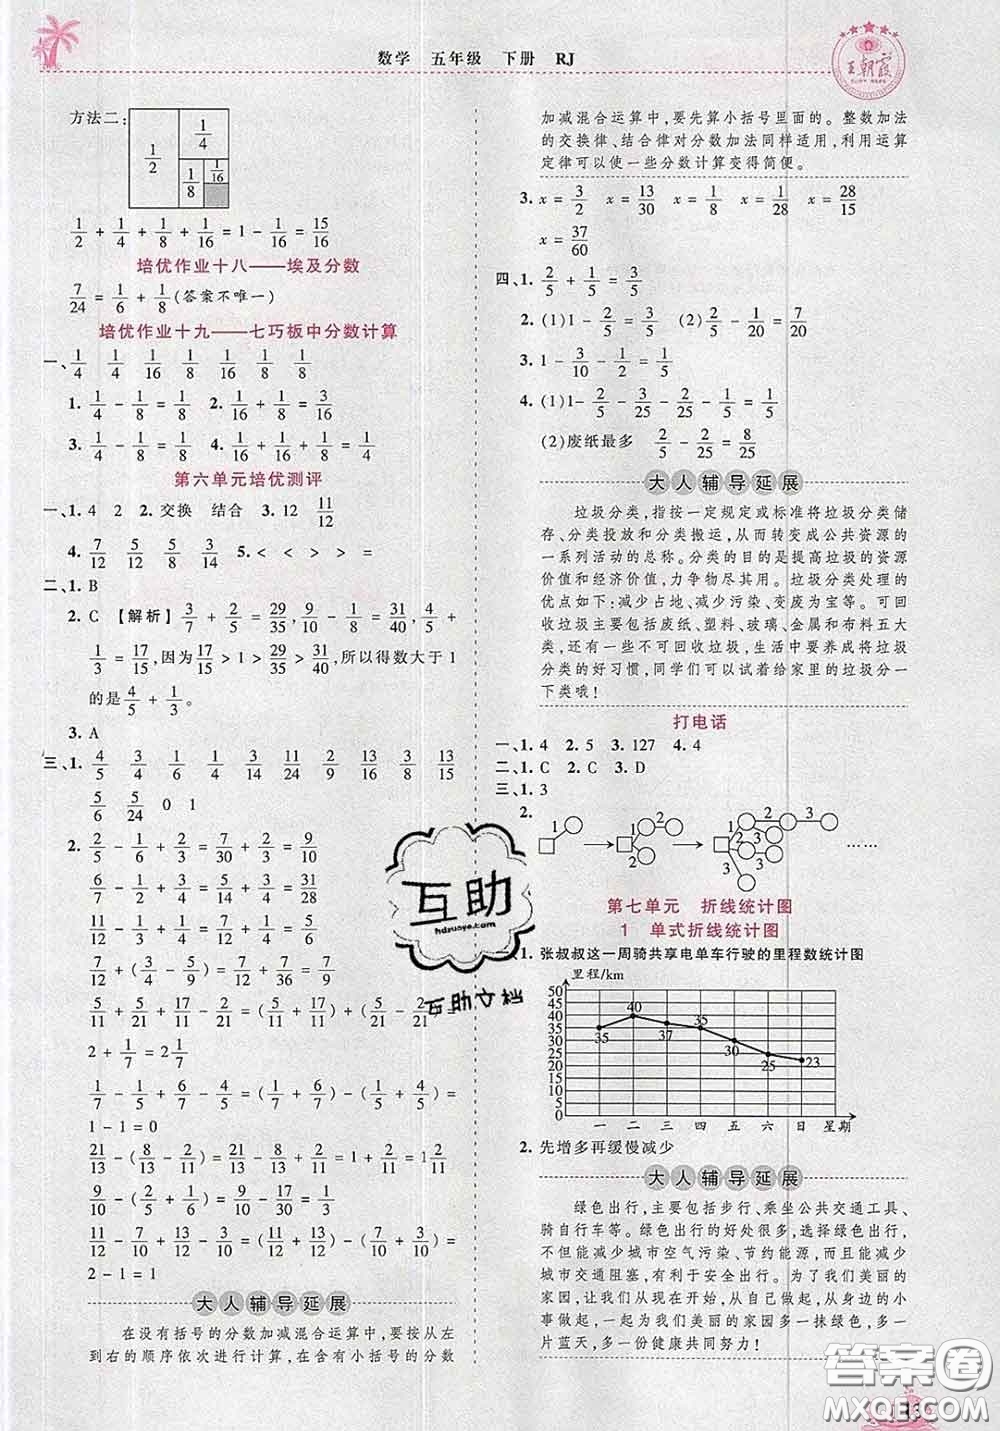 数学 五年级 下册 RJ
王朝霞
方法二:
1/2 1/4 1/8 1/16
1/2 + 1/4 + 1/8 + 1/16 = 1 - 1/16 = 15/16
培优作业十八——埃及分数
7/24 = 1/6 + 1/8 (答案不唯一)
培优作业十九——七巧板中分数计算
一、1/4 1/4 1/8 1/16 1/16 1/8 1/8
1. 1/4 - 1/8 = 1/8 2. 1/16 + 1/8 = 3/16
3. 1/4 - 1/8 = 1/8 4. 1/16 + 1/16 + 1/4 = 3/8
第六单元培优测评
一、1. 4 2 2. 交换 结合 3. 12 11/12
4. 7/12 5/12 5/8 1/8 5. < < > > =
二、1. B
2. C 【解析】3/7 + 2/5 = 29/35, 9/10 - 1/8 = 31/40, 4/5 +
1/3 = 17/15, 因为 17/15 > 1 > 29/35 > 31/40, 所以得数大于 1
的是 4/5 + 1/3。
3. A
三、1. 4/5 3/4 1/6 1/4 3/14 11/24 2/9 13/12 3/8 13/15
5/6 5/24 0 1
2. 2/5 - 1/6 + 2/3 = 7/30 + 2/3 = 9/10
6/7 - 1/4 + 2/7 = 17/28 + 2/7 = 25/28
11/12 - 1/6 + 5/9 = 3/4 + 5/9 = 47/36
5/11 + 5/21 + 17/11 + 2/21 = (5/11 + 17/11) + (5/21 - 2/21) =
2 + 1/7 = 2 1/7
1/7 - 1/5 + 6/7 - 4/5 = (1/7 + 6/7) - (1/5 + 4/5) =
1 - 1 = 0
21/13 - (8/13 - 2/11) = 21/13 - 8/13 + 2/11 = 1 + 2/11 = 1 2/11
9/10 - (1/5 + 1/6) = 9/10 - 11/30 = 8/15
13/12 - 7/10 + 11/12 - 3/10 = (13/12 + 11/12) - (7/10 + 3/10) =
2 - 1 = 1
大人辅导延展
在没有括号的分数加减混合运算中,要按从左
到右的顺序依次进行计算,在含有小括号的分数
加减混合运算中,要先算小括号里面的。整数加法
的交换律、结合律对分数加法同样适用,利用运算
定律可以使一些分数计算变得简便。
3. x = 3/2 x = 13/30 x = 1/8 x = 1/28 x = 28/15
x = 37/60
四、1. 2/5 + 1/5 = 3/5
2. (1) 1 - 2/5 = 3/5 (2) 2/5 - 1/20 = 7/20
3. 1 - 3/10 - 1/2 = 1/5
4. (1) 1 - 2/5 - 3/25 - 2/25 - 1/5 = 1/5
(2) 废纸最多 2/5 - 2/25 = 8/25
大人辅导延展
垃圾分类,指按一定规定或标准将垃圾分类储
存、分类投放和分类搬运,从而转变成公共资源的
一系列活动的总称。分类的目的是提高垃圾的资源
价值和经济价值,力争物尽其用。垃圾分类处理的
优点如下:减少占地、减少污染、变废为宝等。可回
收垃圾主要包括废纸、塑料、玻璃、金属和布料五大
类,还有一些不可回收垃圾,生活中要养成将垃圾
分类的好习惯,同学们可以试着给家里的垃圾分一
下类哦!
打电话
一、1. 4 2. 5 3. 127 4. 4
二、1. C 2. C 3. D
三、1. 3
2. 1 1 2 2 1 2 3 2 3 3 ……
第七单元 折线统计图
1 单式折线统计图
1. 张叔叔这一周骑共享电单车行驶的里程数统计图
里程/km
50 45 40 35 30 25 20 15 10 5 0
35 40 37 35 30 25 23
一 二 三 四 五 六 日 星期
2. 先增多再缓慢减少
大人辅导延展
绿色出行,主要包括步行、乘坐公共交通工具、
骑自行车等。绿色出行的好处很多,选择绿色出行,
不但能减少城市空气污染、节约能源,而且能减少
城市交通阻塞,有利于安全出行。为了我们美丽的
家园,让我们从现在开始,从自己做起,从身边的小
事做起,一起为我们美丽的家园多一抹绿色,多一
片蓝天,多一份健康共同努力!
互助
hdzuoye.com
互助文档
答案圈
MXQE.COM